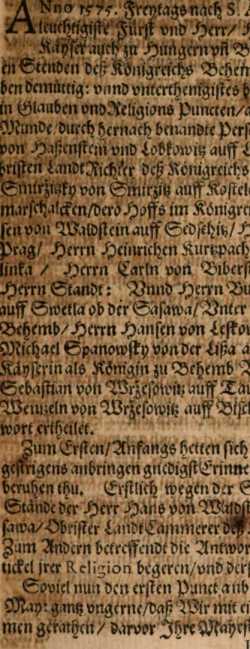 ANno 1575. Freytags nach S.
leuchtigiste Fürst vnd Herr/
Kayser auch zu Hungern vñ B
en Stenden deß Königreichs Behem
ben demüttig: vand vnterthenigistes b
in Glauben vnd Religions Puncten/a
Munde/durch hernach benandte Perf
von Haßenstein vnd Lobkowitz auff L
bristen LandtRichter deß Königreichs
Smirzitzky von Smirzitz auff Kostele
marschalcken/dero Hoffs im Königrei
sen von Waldstein auff Sedsehitz/H
Prag/ Herrn Heinrichen Kurtzpach
linka / Herrn Carln von Bibers
Herrn Standt: Vnnd Herrn Bu
auff Swetla ob der Sasawa/Vnter
Behemb/Herrn Hansen von Leskow
Michael Spanowsky von der Lißa a
Käyserin als Königin zu Behemb V
Sebastian von Wrzesowitz auff Tau
Wentzeln von Wrzesowitz auff Bisel
wort ertheilet.
Zum Ersten/Anfangs hetten sich
gestrigens anbringen gnedigst Erinne
beruhen thu. Erstlich wegen der S
Stände der Herr Hans von Waldst
sawa/Obrister LandtCammerer deß
Zum Andern betreffendt die Antwor
tickel jrer Religion begeren/vnd ders
Soviel nun den ersten Punct anb
May: gantz vngerne/daß Wir mit ei
men gerathen/ darvor Ihre Mayest